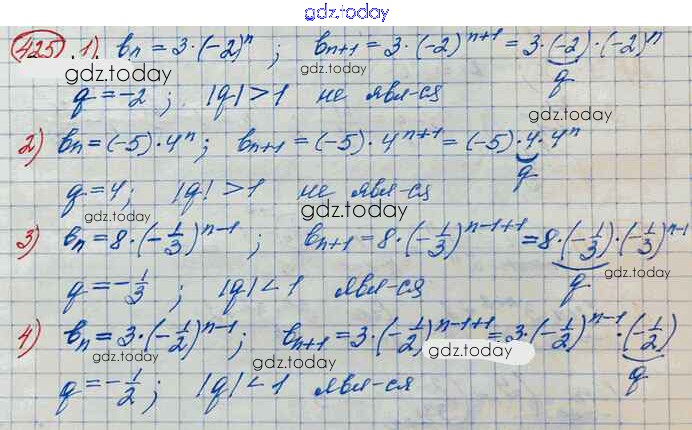 gdz.today
425. 1) bₙ = 3·(-2)ⁿ ; bₙ₊₁ = 3·(-2)ⁿ⁺¹ = 3·(-2)·(-2)ⁿ
gdz.today q
gdz.today
q = -2 ; |q| > 1 не явл-ся gdz.today
2) bₙ = (-5)·4ⁿ ; bₙ₊₁ = (-5)·4ⁿ⁺¹ = (-5)·4·4ⁿ
q
q = 4 ; |q| > 1 не явл-ся
gdz.today gdz.today
3) bₙ = 8·(-1/3)ⁿ⁻¹ ; bₙ₊₁ = 8·(-1/3)ⁿ⁻¹⁺¹ = 8·(-1/3)·(-1/3)ⁿ⁻¹
gdz.today
q = -1/3 ; |q| < 1 явл-ся q
4) bₙ = 3·(-1/2)ⁿ⁻¹ ; bₙ₊₁ = 3·(-1/2)ⁿ⁻¹⁺¹ = 3·(-1/2)ⁿ⁻¹·(-1/2)
gdz.today gdz.today gdz.today
q
q = -1/2 ; |q| < 1 явл-ся
gdz.today